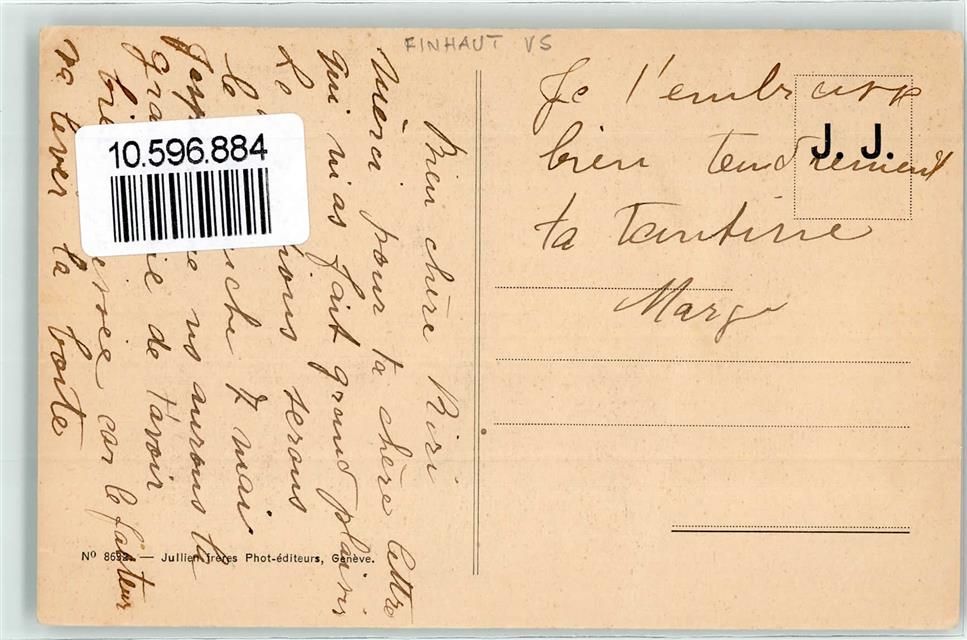 FINHAUT VS
10.596.884
Bien chère Riri
Merci pour ta chère lettre
qui m'as fait grand plaisir
Le serons
le 7 mai
ns aurons la
de t'avoir
car le facteur
va lever la boîte
Je t'embrasse
bien tendrement
ta tantine
Margo
J. J.
Nº — Jullien frères Phot-éditeurs, Genève.